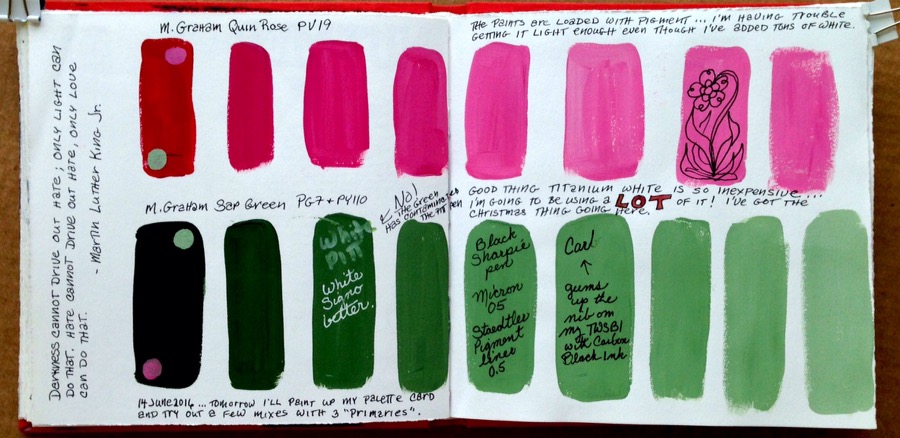 Darkness cannot drive out hate; only light can
do that. Hate cannot drive out hate, only love
can do that.
- Martin Luther King Jr.
M. Graham Quin Rose PV19
M. Graham Sap Green PG7 + PY110
← No!
The Green
Has contaminated
the pen
White
Pitt
White
Signo
better.
14 June 2016 ... Tomorrow I'll paint up my palette card
and try out a few mixes with 3 "Primaries".
The paints are loaded with pigment ... I'm having trouble
getting it light enough even though I've added tons of white.
Good thing Titanium White is so inexpensive...
I'm going to be using a LOT of it! I've got the
Christmas thing going here.
Black
Sharpie
pen
Micron
05
Staedtler
Pigment
liner
0.5
↑
gums
up the
nib on
my TWSBI
with Carbon
Black Ink